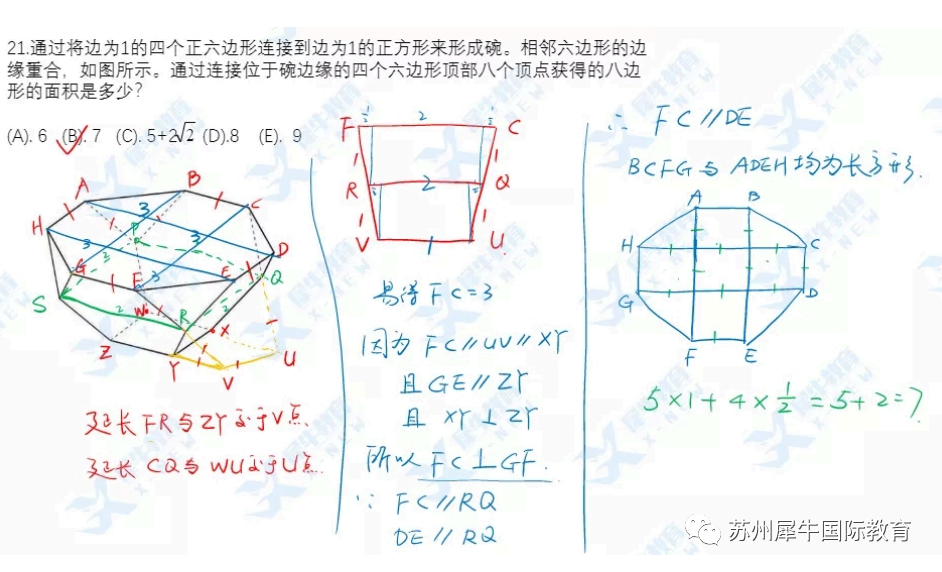 21.通过将边为1的四个正六边形连接到边为1的正方形来形成碗。相邻六边形的边
缘重合，如图所示。通过连接位于碗边缘的四个六边形顶部八个顶点获得的八边
形的面积是多少？
(A). 6 (B). 7 (C). 5+2√2 (D).8 (E). 9
A
B
H
C
3
3
3
3
D
G
F
E
Q
2
2
S
2
W
R
X
Z
Y
V
U
延长FR与ZY交于V点.
延长CQ与WU交于U点.
F
½
2
½
C
1
1
R
2
Q
1
1
V
1
U
易得 FC=3
因为 FC//UV//XY
且 GE//ZY
且 XY⊥ZY
所以 FC⊥GF.
∵ FC//RQ
DE//RQ
∴ FC//DE
BCFG与ADEH均为长方形.
A
B
H
C
G
D
F
E
5×1+4×½=5+2=7
苏州犀牛国际教育
犀牛教育
X-NEW